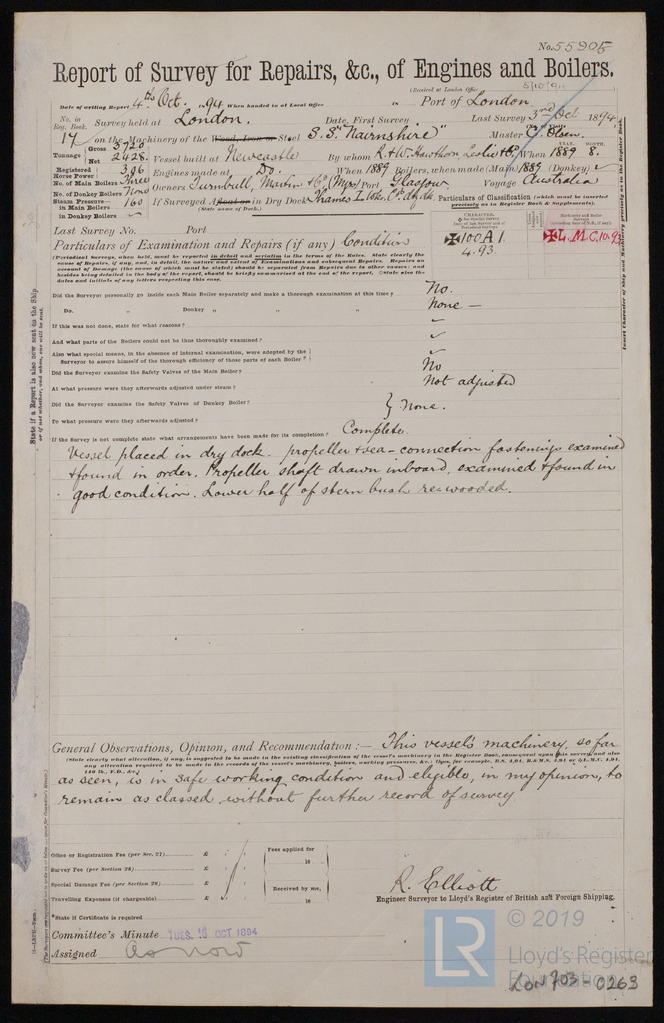 No. 55905
Report of Survey for Repairs, &c., of Engines and Boilers.
(Received at London Office 5/10/94
Date of writing Report 4th Oct. 1894 When handed in at Local Office 18 Port of London
No. in Reg. Book. Survey held at London. Date, First Survey Last Survey 3rd Oct 1894
17 on the Machinery of the Wood, Iron or Steel S.S. "Nairnshire" Master C. Olsen.
Tonnage Gross 3720 Net 2428 Vessel built at Newcastle By whom R & W. Hawthorn Leslie & Co. When YEAR. 1889 MONTH. 8.
Registered Horse Power 306 Engines made at Do. When 1889 Boilers, when made (Main) 1889 (Donkey)
No. of Main Boilers Three
No. of Donkey Boilers None Owners Turnbull, Martin & Co. (Mgrs) Port Glasgow Voyage Australia
Steam Pressure in Main Boilers 160 If Surveyed Afloat or in Dry Dock Thames I. Wks. Co.
in Donkey Boilers (State name of Dock.)
Particulars of Classification (which must be inserted precisely as in Register Book & Supplements).
Last Survey No. Port
CHARACTER.
100 A 1.
4.93
L.M.C. 10.93
Particulars of Examination and Repairs (if any) Condition
(Periodical Surveys, when held, must be reported in detail and seriatim in the terms of the Rules. State clearly the
cause of Repairs, if any, and, in detail, the nature and extent of Examinations and subsequent Repairs. Repairs on
account of Damage (the cause of which must be stated) should be separated from Repairs due to other causes; and
besides being detailed in the body of the report, should be briefly summarised at the end of the report. State also the
dates and initials of any letters respecting this case.
Did the Surveyor personally go inside each Main Boiler separately and make a thorough examination at this time? No.
Do. Donkey „ „ „ None —
If this was not done, state for what reasons?
And what parts of the Boilers could not be thus thoroughly examined?
Also what special means, in the absence of internal examination, were adopted by the
Surveyor to assure himself of the thorough efficiency of those parts of each Boiler?
Did the Surveyor examine the Safety Valves of the Main Boiler? No
At what pressure were they afterwards adjusted under steam? Not adjusted
Did the Surveyor examine the Safety Valves of Donkey Boiler? } None.
To what pressure were they afterwards adjusted?
If the Survey is not complete state what arrangements have been made for its completion? Complete.
Vessel placed in dry dock - propeller & sea-connection fastenings examined
& found in order. Propeller shaft drawn inboard, examined & found in
good condition. Lower half of stern bush re-wooded.
General Observations, Opinion, and Recommendation:— This vessel's machinery, so far
(State clearly what alteration, if any, is suggested to be made in the existing classification of the vessel's machinery in the Register Book, consequent upon this survey, and also
any alteration required to be made in the records of the vessel's machinery, boilers, working pressures, &c.: thus, for example, B.S. 4,91, B.&M.S. 4,91 or L.M.C. 4,91,
140 lb., F.D., &c.)
as seen, is in safe working condition and eligible, in my opinion, to
remain as classed without further record of survey
Office or Registration Fee (per Sec. 27) £ Fees applied for
Survey Fee (per Section 28) £ 18
Special Damage Fee (per Section 28) £ Received by me,
Travelling Expenses (if chargeable) £ 18
R. Elliott
Engineer Surveyor to Lloyd's Register of British and Foreign Shipping.
*State if Certificate is required
Committee's Minute TUES. 16 OCT 1894
Assigned As now
State if a Report is also now sent on the Ship
or if not whether, and when, one will be sent.
Insert Character of Ship and Machinery precisely as in the Register Book.
LR © 2019
Lloyd's Register
Foundation
LON 703-0263